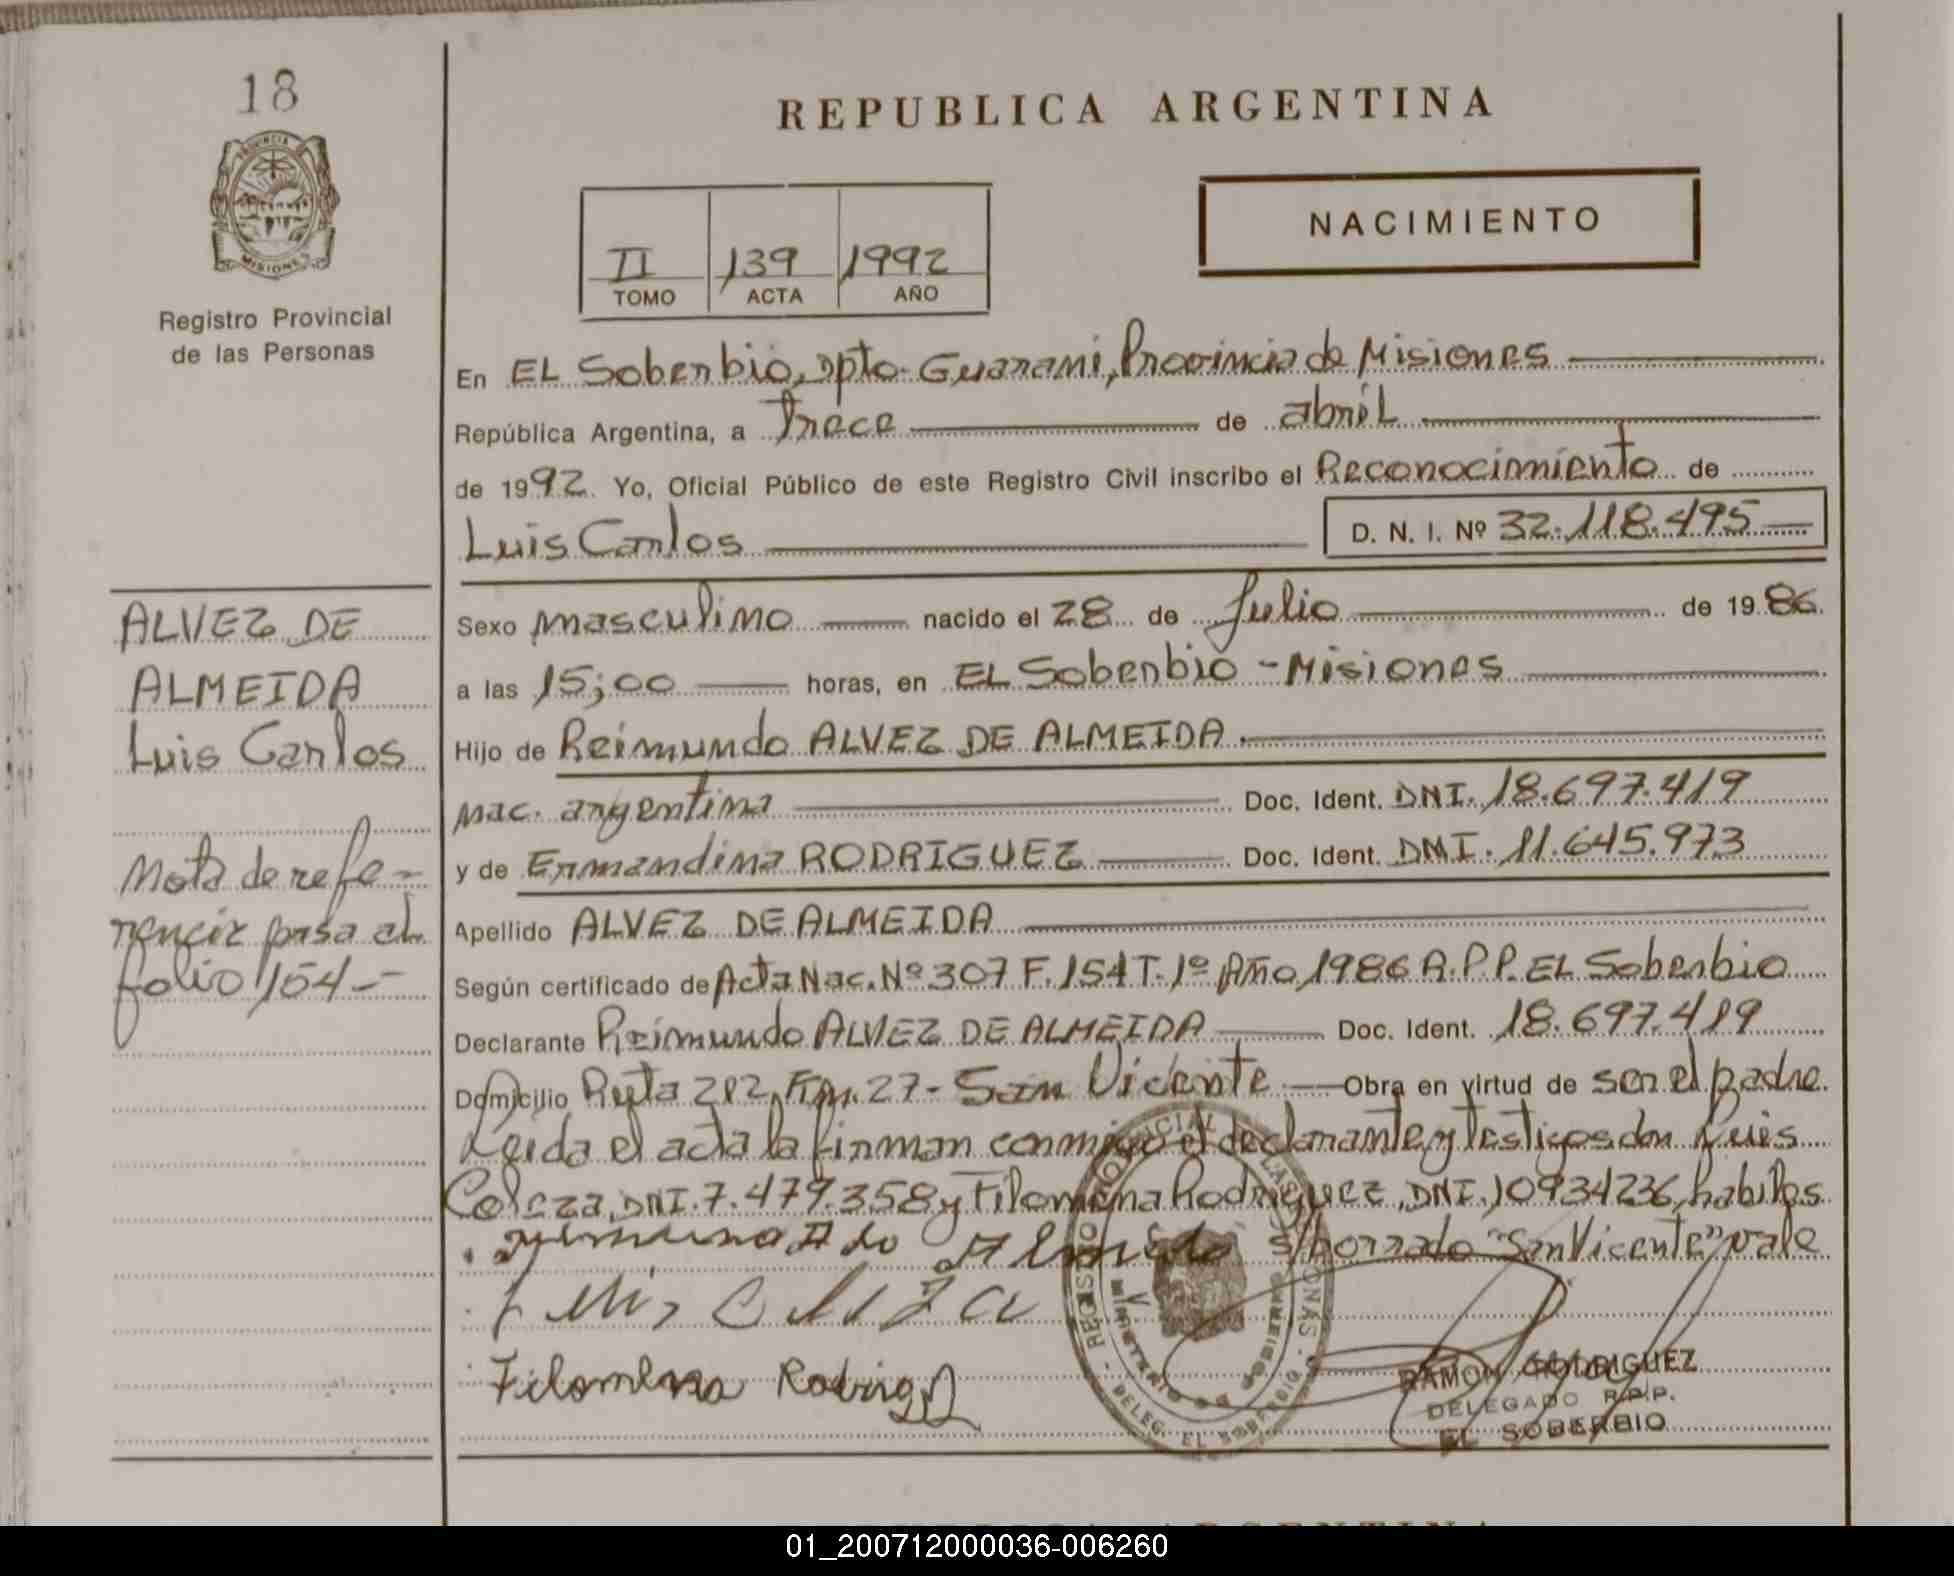 18
PROVINCIA
MISIONES
Registro Provincial
de las Personas
REPUBLICA ARGENTINA
NACIMIENTO
II 139 1992
TOMO ACTA AÑO
En EL Soberbio, Dpto. Guaraní, Provincia de Misiones
República Argentina, a Trece de abril
de 1992. Yo, Oficial Público de este Registro Civil inscribo el Reconocimiento de
Luis Carlos D. N. I. Nº 32.118.495
ALVEZ DE
ALMEIDA
Luis Carlos
Nota de refe-
rencia pasa al
folio 154-
Sexo masculino nacido el 28 de Julio de 1986.
a las 15;00 horas, en EL Soberbio - Misiones
Hijo de Reimundo ALVEZ DE ALMEIDA.
nac. argentina Doc. Ident. DNI. 18.697.419
y de Ermandina RODRIGUEZ Doc. Ident. DNI. 11.645.973
Apellido ALVEZ DE ALMEIDA
Según certificado de Acta Nac. Nº 307 F. 154 T. 1º Año 1986 R.P.P. EL Soberbio
Declarante Reimundo ALVEZ DE ALMEIDA Doc. Ident. 18.697.419
Domicilio Ruta 212, Km. 27- San Vicente Obra en virtud de ser el padre.
Leida el acta la firman conmigo el declarante y testigos don Luis
DNI. 7.479.358 y Filomena Rodriguez, DNI. 10934236, habiles
S/borrado "San Vicente" vale
Filomena
REGISTRO PROVINCIAL DE LAS PERSONAS
MINISTERIO DE GOBIERNO
DELEG. EL SOBERBIO
RAMON RODRIGUEZ
DELEGADO R.P.P.
EL SOBERBIO
01_200712000036-006260